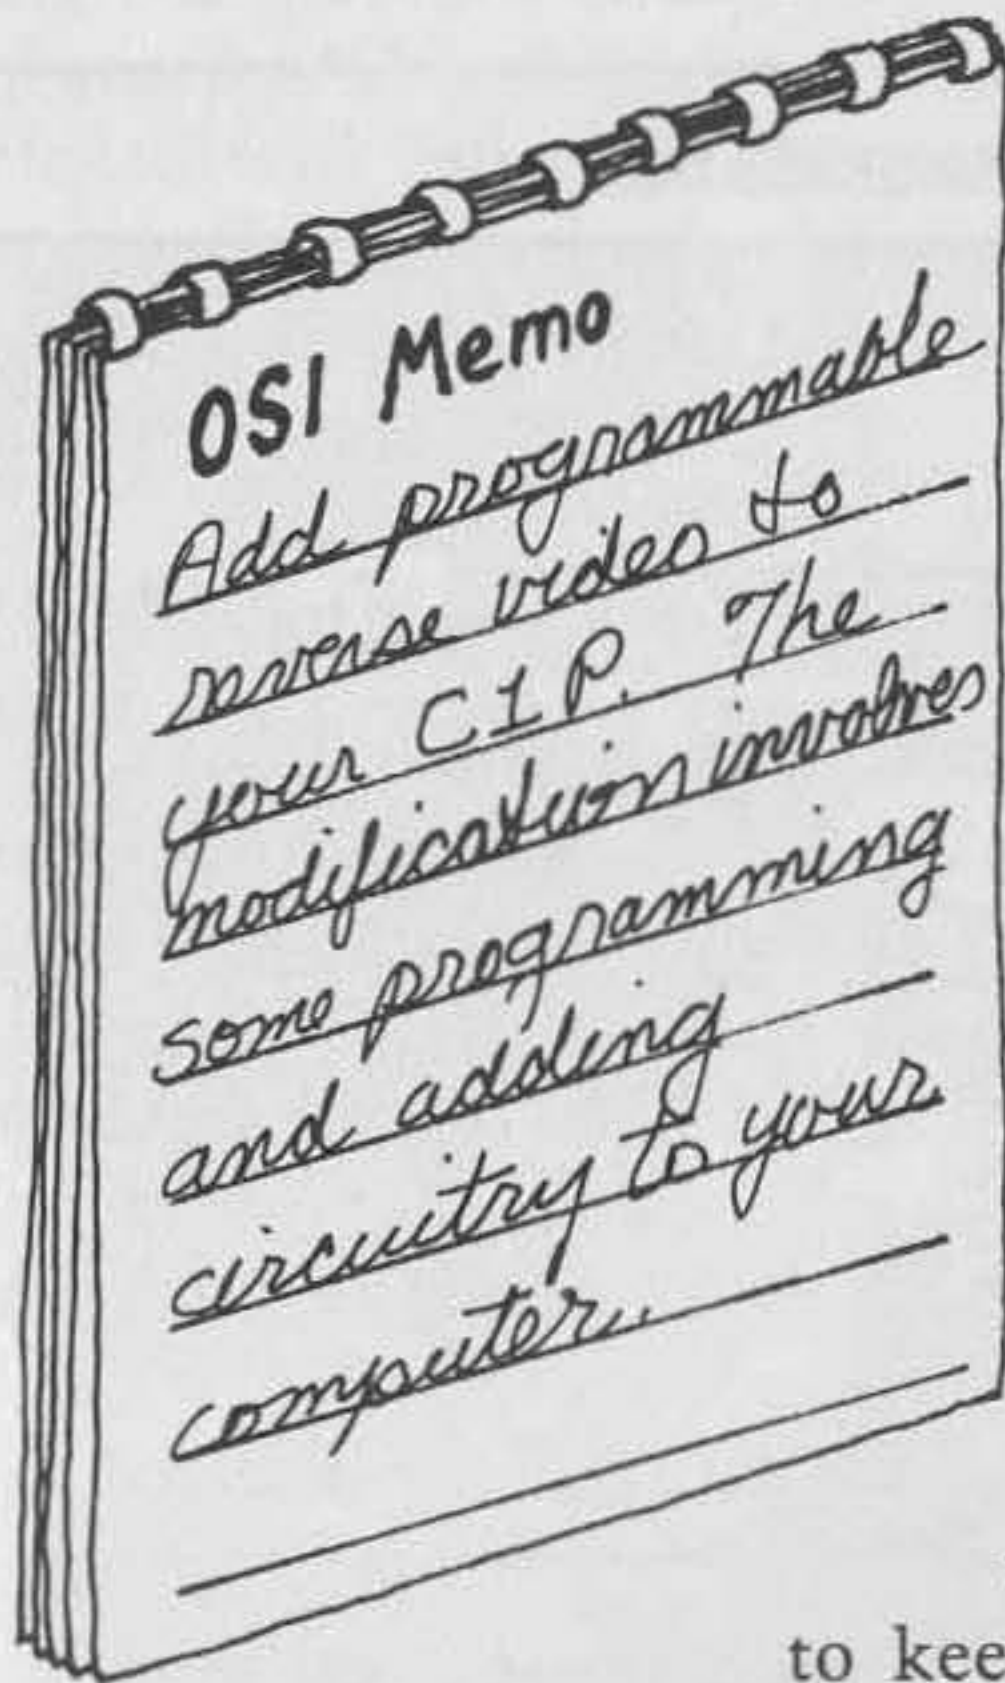 OSI Memo
Add programmable
reverse video to
your C1P. The
modification involves
some programming
and adding
circuitry to your
computer.
to kee